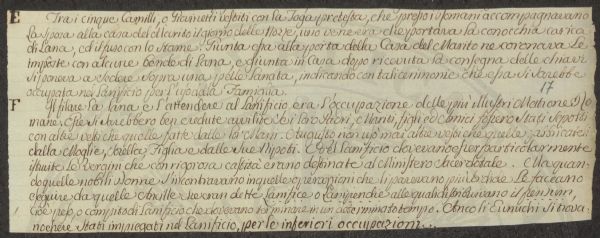 E Tra i cinque Camilli, o Giovinetti vestiti con la Toga pretesta, che presso i Romani accompagnavano
la Sposa alla casa del Marito il giorno delle Nozze, uno v'en era che portava la conocchia carica
di Lana, ed il fuso con lo Stame. Giunta essa alla porta della Casa del Marito ne coronava le
imposte con alcune bende di Lana, e giunta in Casa dopo ricevuta la consegna delle chiavi
si poneva a sedere sopra una pelle lanata, indicando con tal cerimonia che essa si sarebbe
occupata nei Lanificio per l'uso della Famiglia.
17
F Il filare la Lana e l'attendere al Lanificio era l'occupazione delle più illustri Matrone Ro-
mane, che si sarebbero ben credute avvilite se i loro Padri, e Mariti, figli ed amici fossero stati coperti
con altre vesti che quelle fatte dalle loro Mani. Augusto non usò mai altre vesti che quelle fabbricate
dalla Moglie, Sorella, Figlia e dalle sue Nipoti. Nel Lanificio dovevano esser particolarmente
istruite le Vergini che con rigorosa castità erano destinate al Ministero Sacerdotale. Ma quan-
do quelle nobili Donne s'incontravano in quelle operazioni che si parevano più basse le facevano
eseguire da quelle Ancille che eran dette Lanifice o Lanipendie alle quali distribuivano il pensum
cioè peso, o compito di Lanificio che dovevano terminare in un determinato tempo. Anco li Eunuchi si trova-
no essere stati impiegati nel Lanificio, per le inferiori occupazioni.